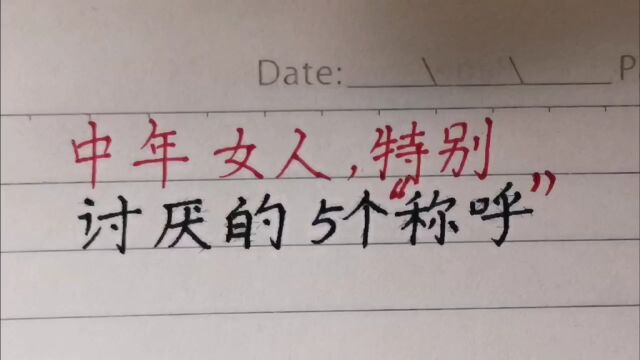 Date: ___\___\___ P
中年女人,特别
讨厌的5个“称呼”